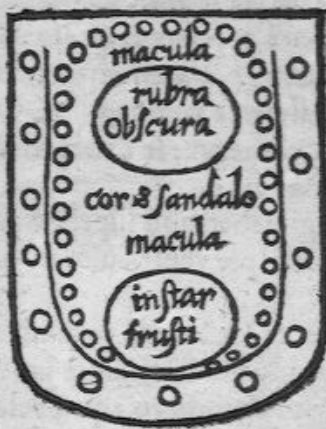 macula
rubra
obſcura
cor & ſandalo
macula
inſtar
fruſti